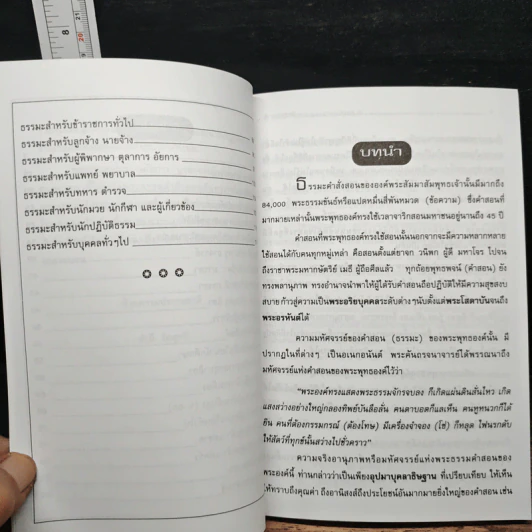 8
ธรรมะสำหรับข้าราชการทั่วไป
ธรรมะสำหรับลูกจ้าง นายจ้าง
ธรรมะสำหรับผู้พิพากษา ตุลาการ อัยการ
ธรรมะสำหรับแพทย์ พยาบาล
ธรรมะสำหรับทหาร ตำรวจ
ธรรมะสำหรับนักมวย นักกีฬา และผู้เกี่ยวข้อง
ธรรมะสำหรับนักปฏิบัติธรรม
ธรรมะสำหรับบุคคลทั่วๆ ไป
บทนำ
ธรรมะคำสั่งสอนขององค์พระสัมมาสัมพุทธเจ้านั้นมีมากถึง
84,000 พระธรรมขันธ์หรือแปดหมื่นสี่พันหมวด (ข้อความ) ซึ่งคำสอนที่
มากมายเหล่านั้นพระพุทธองค์ทรงใช้เวลาจาริกสอนมหาชนอยู่นานถึง 45 ปี
คำสอนที่พระพุทธองค์ทรงใช้สอนนั้นนอกจากจะมีความหลากหลาย
ใช้สอนได้กับคนทุกหมู่เหล่า คือสอนตั้งแต่ยาจก วนิพก ผู้ดี มหาโจร ไปจน
ถึงราชาพระมหากษัตริย์ เมธี ผู้ถือศีลแล้ว ทุกถ้อยพุทธพจน์ (คำสอน) ยัง
ทรงพลานุภาพ ทรงอำนาจนำพาให้ผู้ได้รับคำสอนถือปฏิบัติให้มีความสุขสงบ
สบาย ก้าวสู่ความเป็นพระอริยบุคคลระดับต่างๆ นับตั้งแต่พระโสดาบันจนถึง
พระอรหันต์ได้
ความมหัศจรรย์ของคำสอน (ธรรมะ) ของพระพุทธองค์นั้น มี
ปรากฏในที่ต่างๆ เป็นอเนกอนันต์ พระคันถรจนาจารย์ได้พรรณนาถึง
มหัศจรรย์แห่งคำสอนของพระพุทธองค์ไว้ว่า
"พระองค์ทรงแสดงพระธรรมจักรจบลง ก็เกิดแผ่นดินสั่นไหว เกิด
แสงสว่างอย่างใหญ่กลองทิพย์บันลือลั่น คนตาบอดก็แลเห็น คนหูหนวกก็ได้
ยิน คนที่ต้องกรรมกรณ์ (ต้องโทษ) มีเครื่องจำจอง (โซ่) ก็หลุด ไฟนรกดับ
ให้สัตว์ที่ทุกข์นั้นสว่างไปชั่วคราว"
ความจริงอานุภาพหรือมหัศจรรย์แห่งพระธรรมคำสอนของ
พระองค์นี้ ท่านกล่าวว่าเป็นเพียงอุปมาบุคลาธิษฐาน ที่เปรียบเทียบ ให้เห็น
ให้ทราบถึงคุณค่า ถึงอานิสงส์ถึงประโยชน์อันมากมายยิ่งใหญ่ของคำสอน เช่น